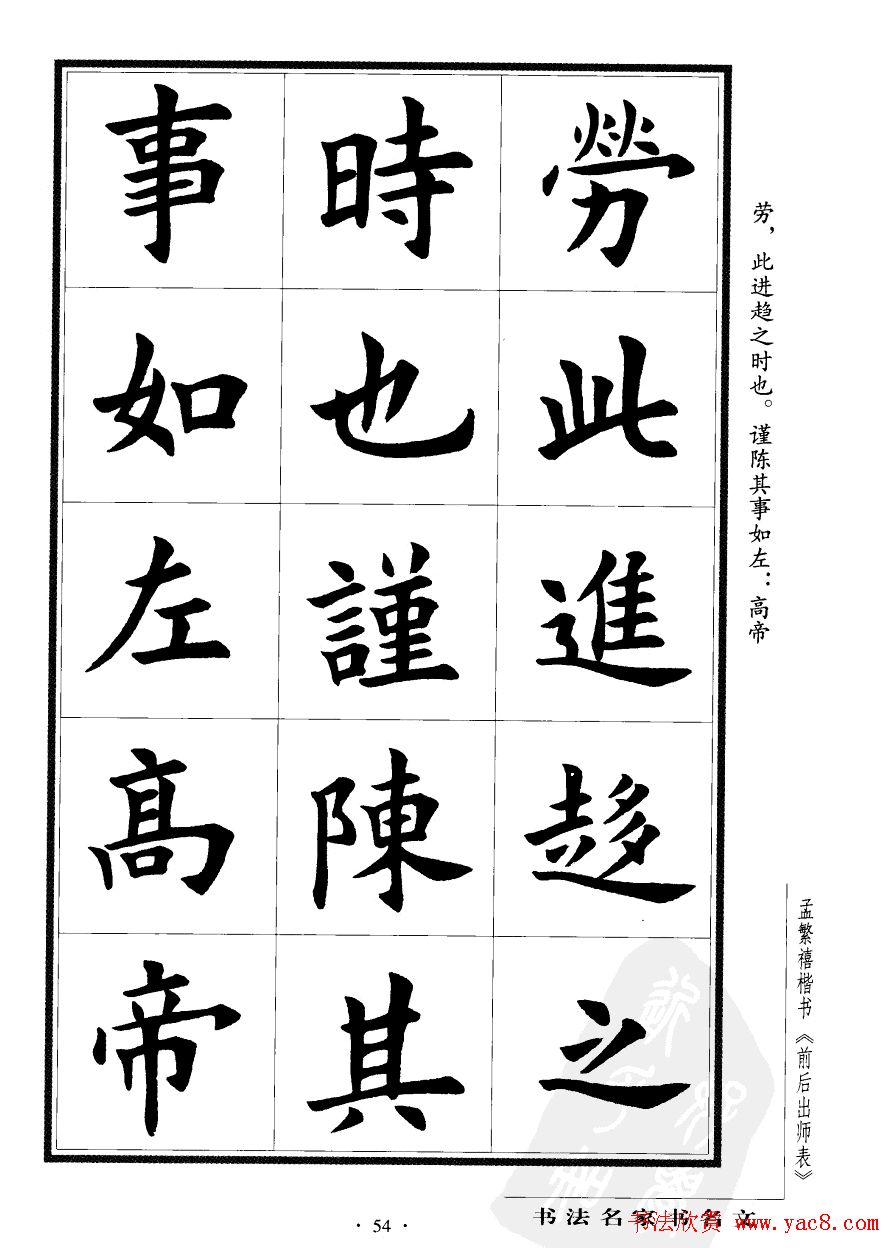 勞此進趍之
時也謹陳其
事如左高帝
劳，此进趋之时也。谨陈其事如左：高帝
孟繁禧楷书《前后出师表》
书法名家书名文
书法欣赏 www.yac8.com
· 54 ·